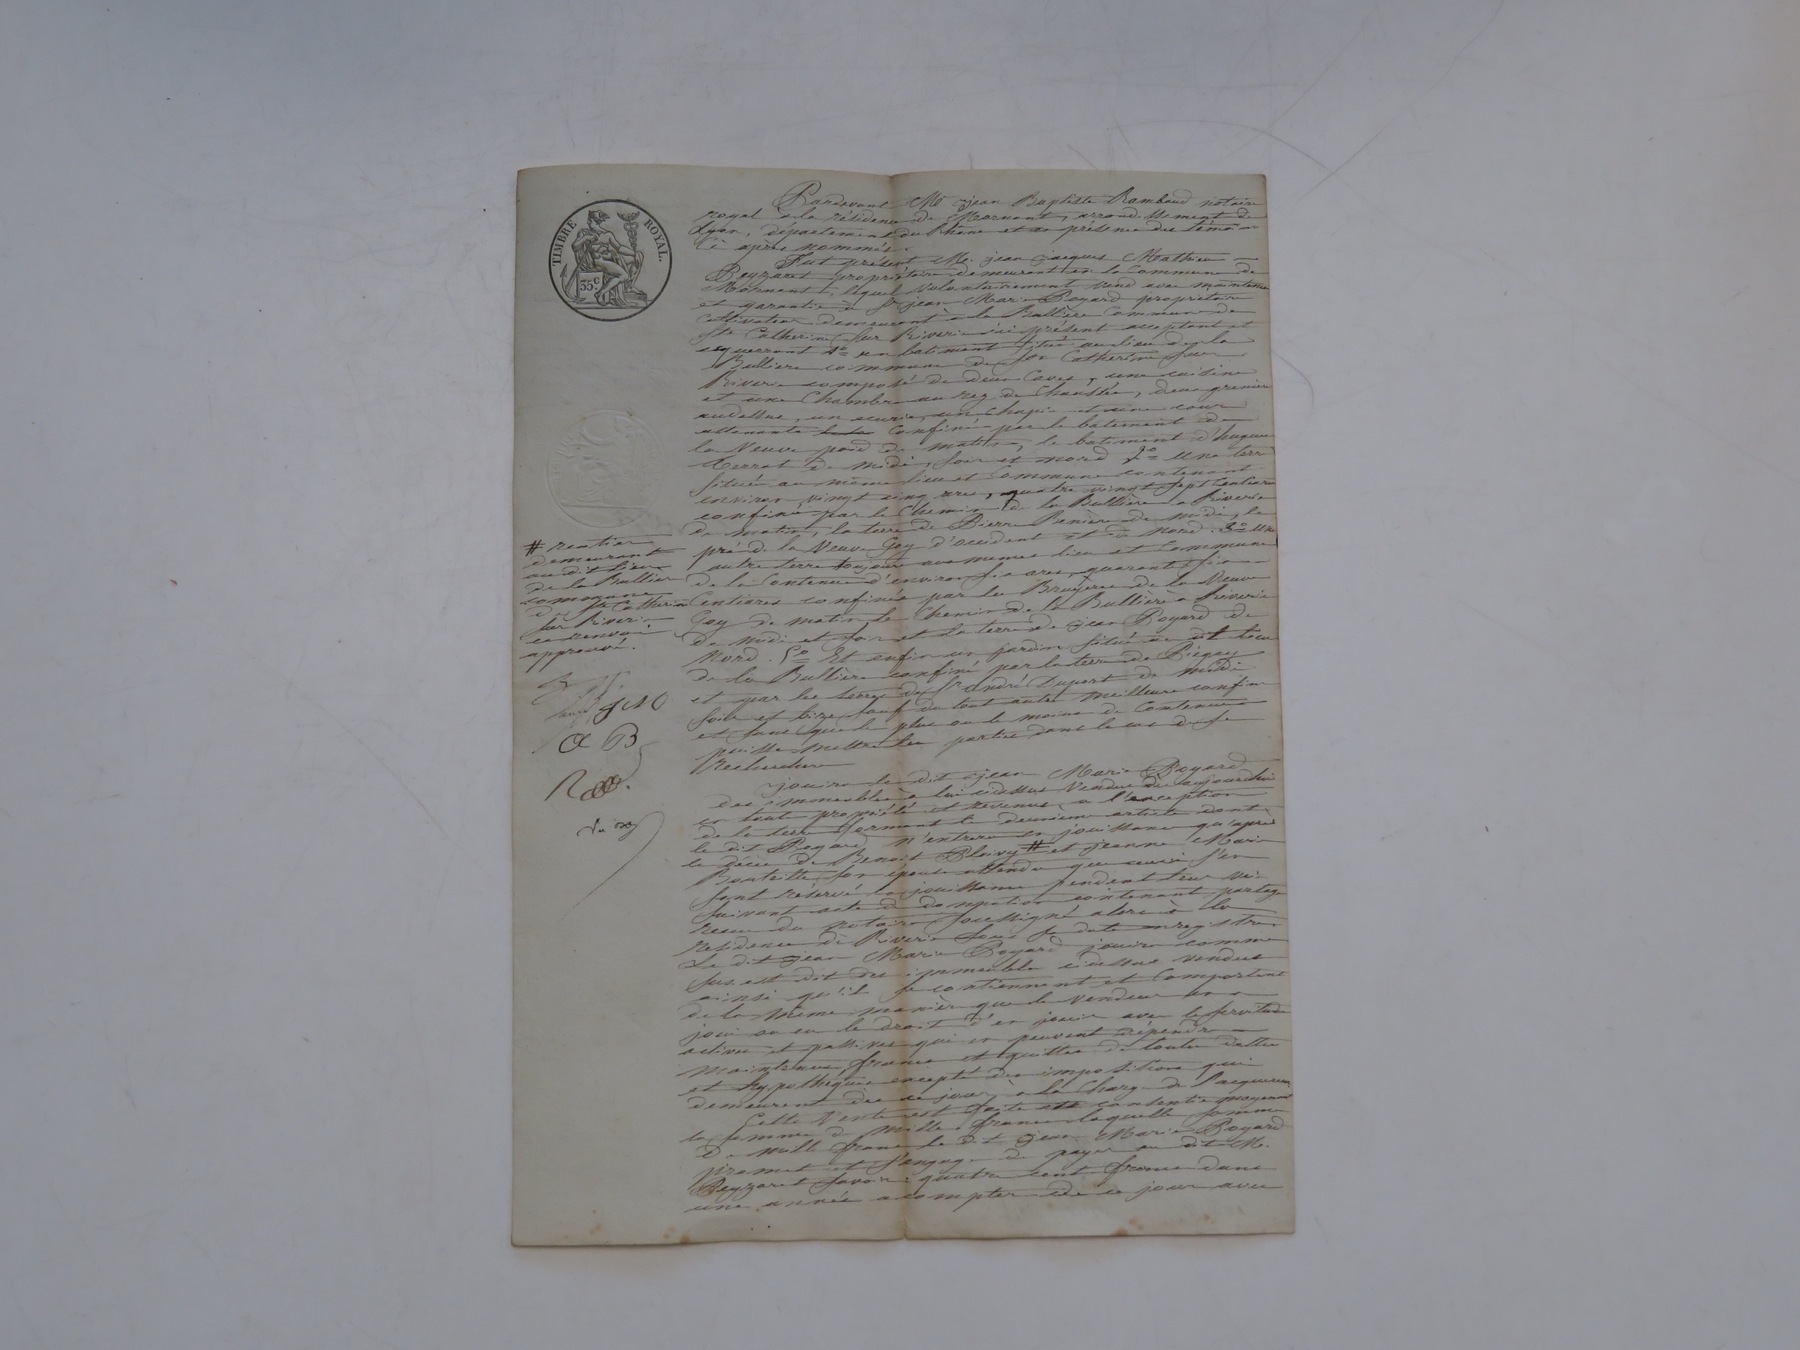 TIMBRE ROYAL.
35c
Pardevant Me jean Baptiste Rambaud notaire
royal à la résidence de Mornant, arrondissement de
Lyon, département du Rhône et en présence des témoins
ci après nommés.
Fut présent Mr. jean jacques Mathieu
Peyzaret propriétaire demeurant en la Commune de
Mornant, lequel volontairement vend avec maintenue
et garantie à Sr jean Marie Boyard propriétaire
cultivateur demeurant à la Bullière Commune de
Ste Catherine sur Riverie ici présent acceptant et
acquerrant 1o un batiment situé au lieu de la
Bulliere commune de Ste Catherine sur
Riverie composé de deux Caves, une cuisine
et une Chambre au rez de Chaussée, deux greniers
audessus, un ecurie, un chapit et une cour
attenante Confinés par le batiment de
la Veuve de matin, le batiment d'hugue
de midi, soir et nord 2o Une terre
située au même lieu et Commune contenant
environ vingt cinq ares, quatre vingt sept Centiares
confiné par le Chemin de la Bullière a Riverie
de matin, la terre de Pierre de midi, le
pré de la Veuve Goy d'occident et de Nord. 3o Une
autre terre toujours aux memes lieu et Commune
de la Contenue d'environ six ares, quarante six
Centiares confinée par les Bruyères de la Veuve
Goy de matin, le Chemin de la Bullière à Riverie
de Midi et soir et la terre de jean Boyard de
Nord. 5o Et enfin un jardin situé au dit lieu
de la Bullière confiné par la terre de
et par les terres du Sr andré Dupert de midi
soir et bize sauf de tout autre meilleure confin
et sans que le plus ou le moins de Contenue
puisse mettre les parties dans le cas de se
rechercher
jouira le dit jean Marie Boyard
des immeubles à lui cidessus Vendus dès aujourdhui
en tout propriété et revenus, a l'exception
de la terre formant le deuxieme article dont
le dit Boyard n'entrera en jouissance qu'après
le décès de Benoit # et jeanne Marie
son epouse attendu que ceux ci s'en
sont réservé la jouissance pendant leur vie
suivant acte de donnation contenant partage
recu du notaire soussigné alors à la
résidence de Riverie sous sa date enregistré.
Le dit jean Marie Boyard jouira comme
sus est dit des immeuble cidessus vendus
ainsi qu'il se contiennent et comportent
de la même manière que le vendeur en a
joui ou eu le droit d'en jouir avec les servitudes
actives et passives qui en peuvent dépendre
maintenus francs et quittes de toute dettes
et hypothèques excepté des impositions qui
demeurent dès ce jour, à la Charge de l'acquereur.
Cette Vente est faite consentie moyennant
la somme de mille francs laquelle somme
de mille francs le dit jean Marie Boyard
promet et s'engage de payer au dit Mr.
Peyzaret savoir: quatre cent francs dans
une année acompter de ce jour avec
# rentier
demeurant
au dit lieu
de la Bullière
commune
de Ste Catherine
sur Riverie
ce renvoi
approuvé.